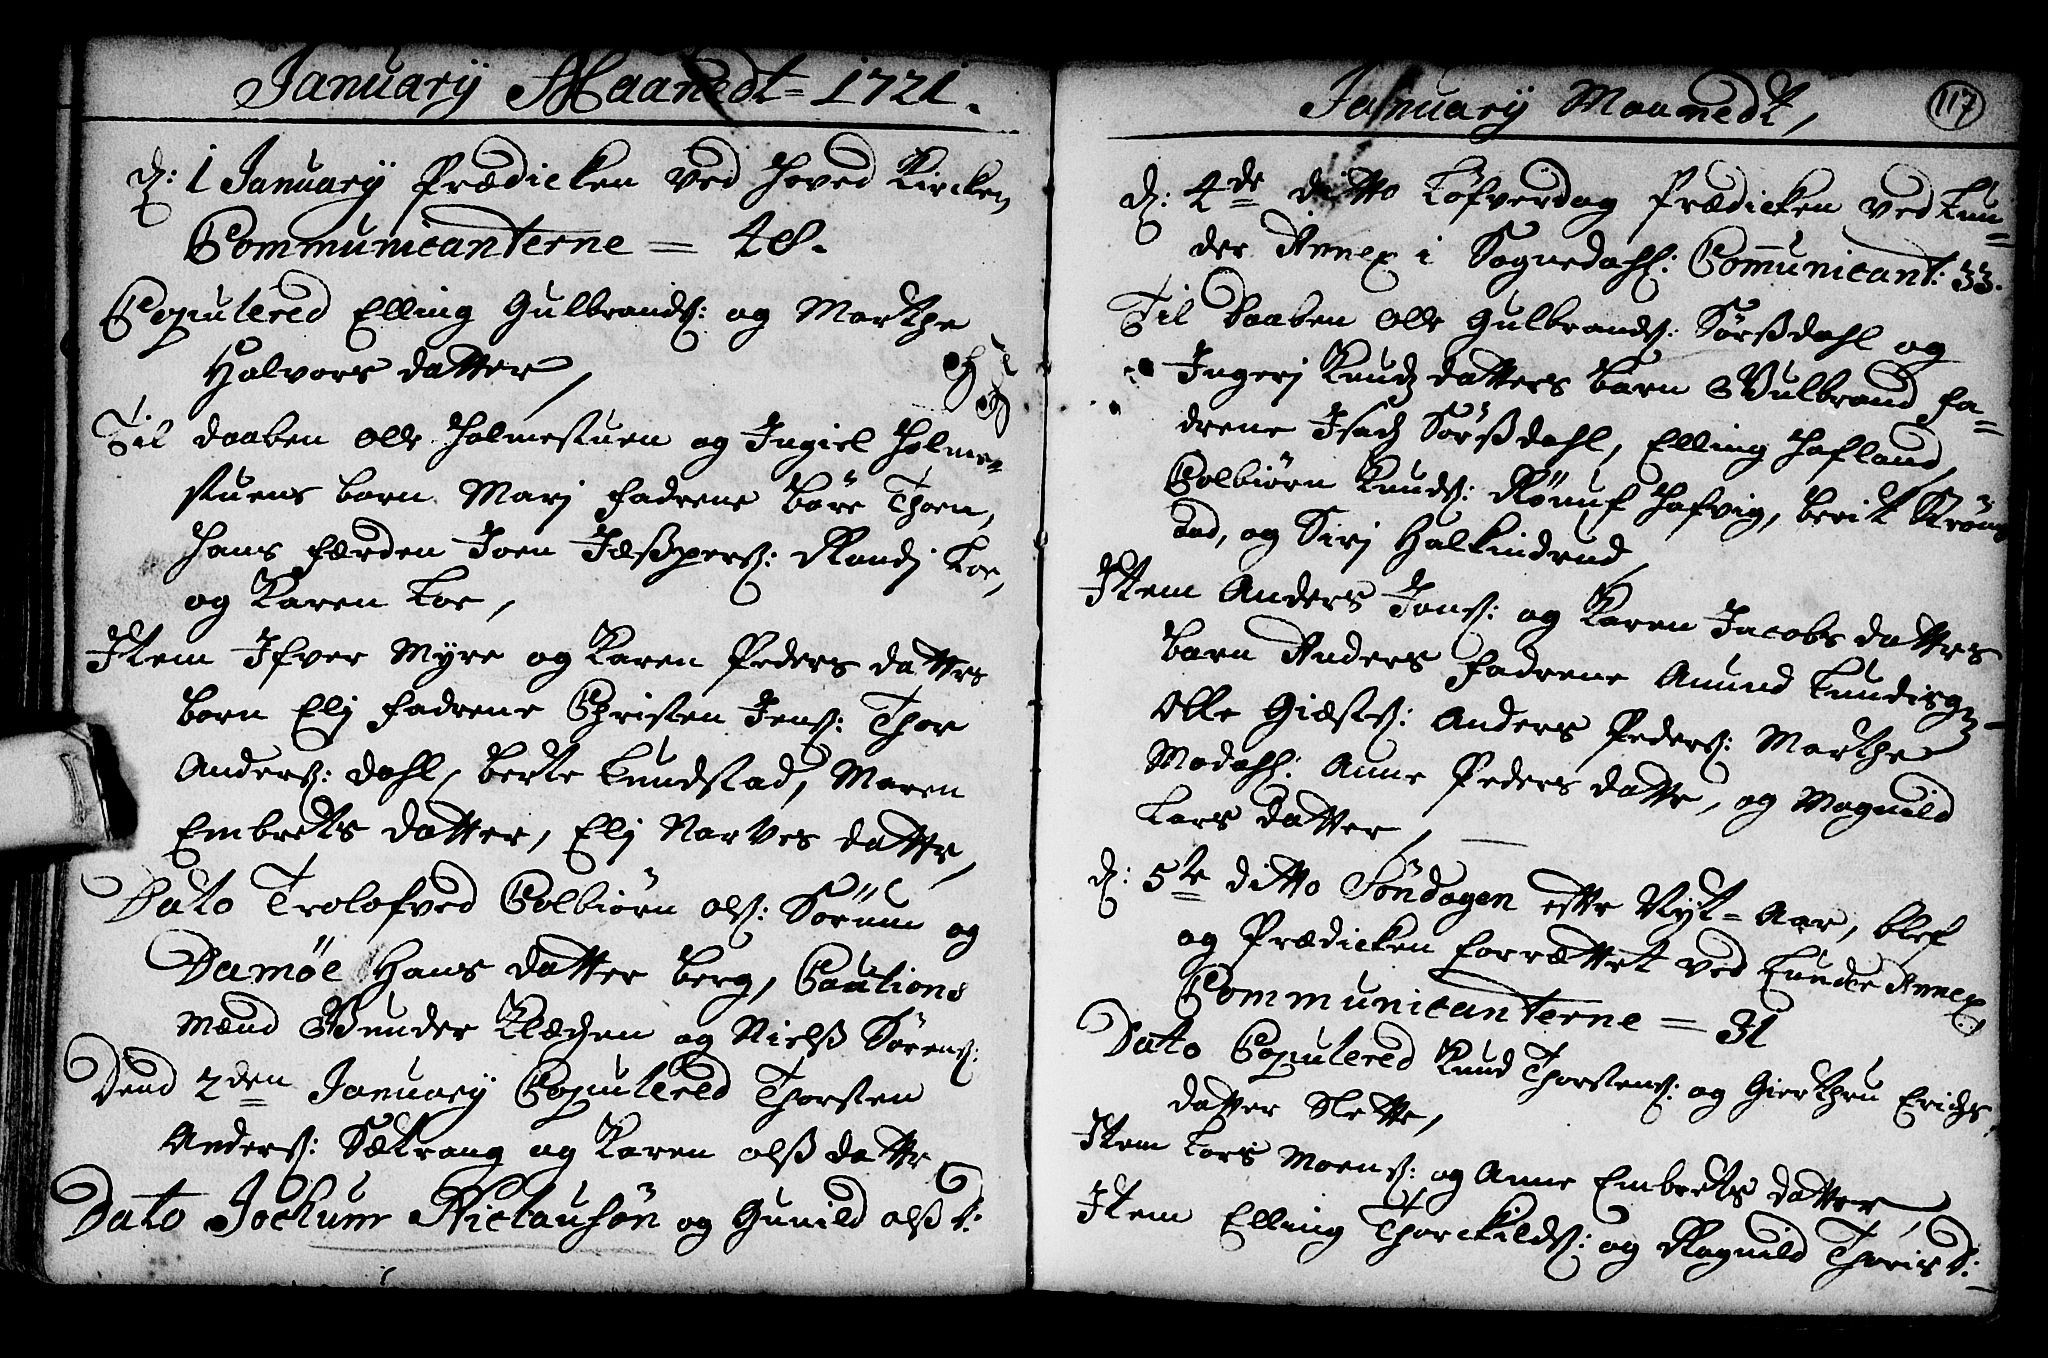 January Maanedt = 1721.
d: 1 January Prædicken ved Hoved Kircken
Communicanterne = 48.
Copulered Elling Gulbrands: og Marthe
Halvors datter,
Til daaben Olle Holmestuen og Ingiel Holme=
stuens barn Marj fadrene Baare Thoen,
Hans Færden Joen Jæsspers: Randj Loe,
og Karen Loe,
Item Ifver Myre og Karen Peders datters
barn Elj fadrene Christen Jens: Thor
Anders: Dahl, Berte Lundstad, Maren
Embrets datter, Elj Narves datter,
Dato Trolofved Colbiørn Ols: Sørum og
Damøe Hans datter Berg, Cautions
mænd Gunder Klæchen og Nielss Sørens:
Dend 2den January Copulered Thorsten
Anders: Sætrang og Karen Olss datter
Dato Jochum Niclausøn og Gunild Olss d:
January Maanedt,
117
d: 4de ditto Løfverdag Prædicken ved Lun=
der Annex i Sognedahl: Comunicant: 33.
Til Daaben Olle Gulbrands: Sørssdahl og
Ingerj Knudz datters barn Gulbrand fa=
drene Isach Sørssdahl, Elling Hafland,
Colbiørn Knuds: Rønuf Hafvig, Berit
og Sirj Halkindrud,
Item Anders Jons: og Karen Jacobs datters
barn Anders fadrene Amund
Olle Giæsts: Anders Peders: Marthe
Modahl: Anne Peders datter, og Magnild
Lars datter,
d: 5te ditto Søndagen efter Nyt=Aar, blef
og Prædicken forrættet ved Lunder Annex,
Communicanterne = 31
Dato Copulered Knud Thorstens: og Gierthru Erichs
datter Slette,
Item Lars Moens: og Anne Embrets datter,
Item Elling Thorckilds: og Ragnild Thoris d: